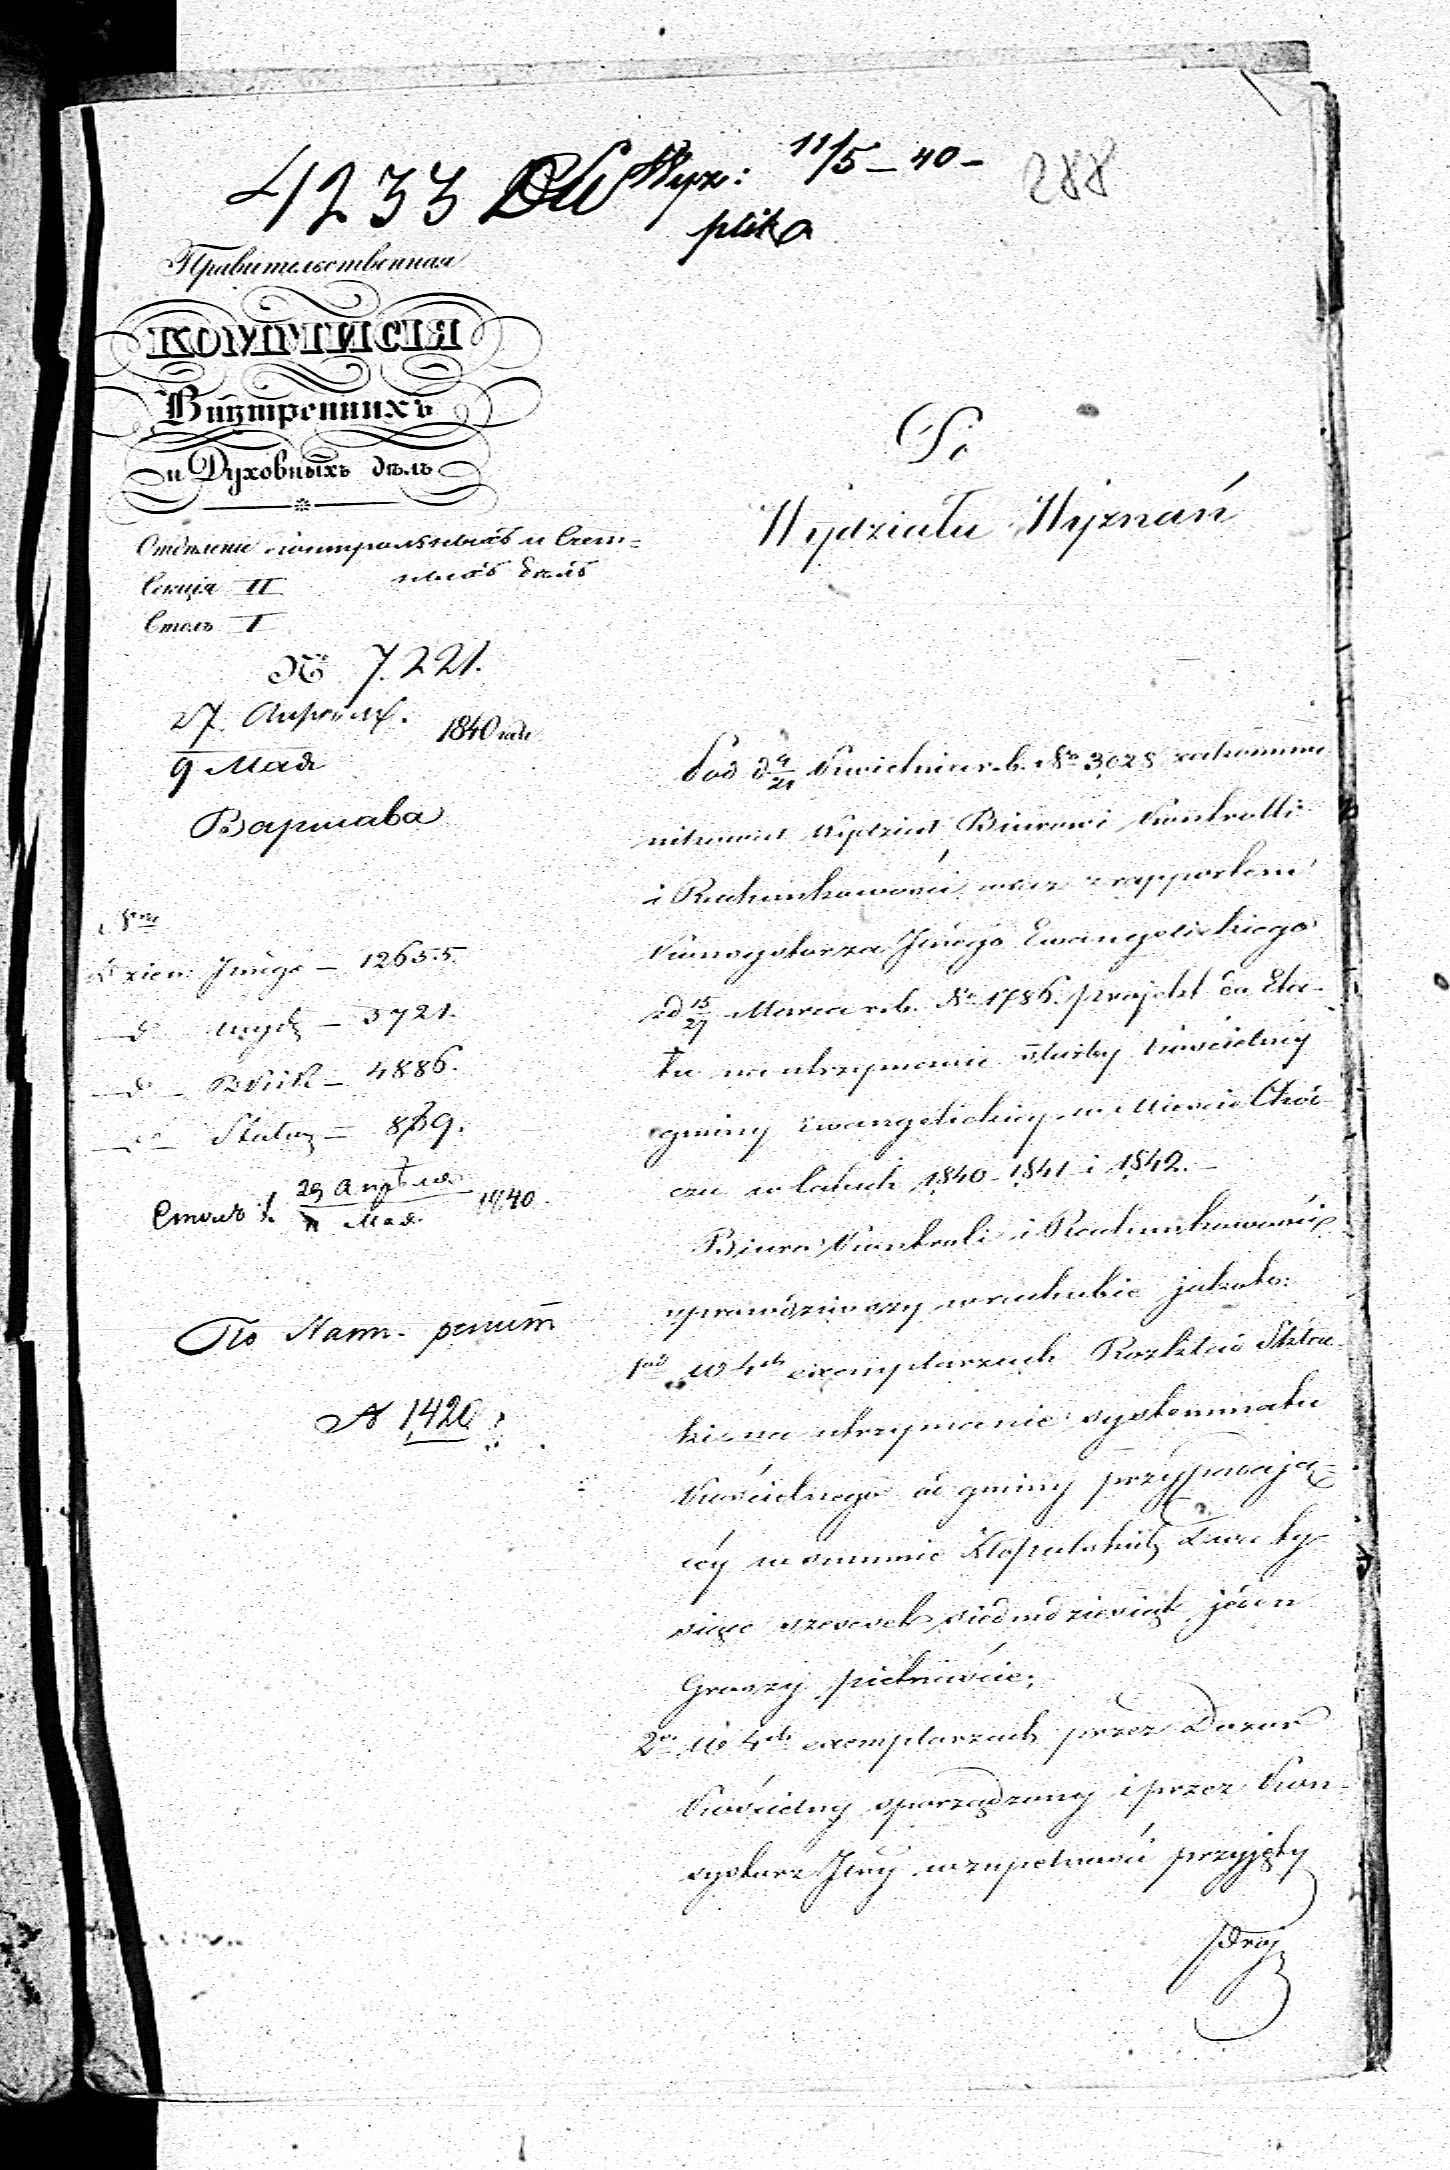 4233 DW Wyzn: 11/5 – 40 –
plika
288
Правительственная
КОММИСІЯ
Внутреннихъ
и Духовныхъ дѣлъ
Отдѣленіе контрольныхъ и Счет=
ныхъ дѣлъ
Секція II
Столъ I
№ 7.221.
27 Апрѣля.
9 Мая
1840 года
Варшава
Nra
Dzien: Jnego – 12655.
do wydz – 3721.
do – BKiR – 4886.
do – Stołu – 839.
29 Апрѣля
Мая 1840.
1420
Do
Wydziału Wyznań
Pod d 9/21 Kwietnia r.b. No 3,028 zakommu
nikował Wydział Biurowi Kontrolli
i Rachunkowości wraz z rapportem
Konsystorza Jnego Ewangelickiego
z d 15/27 Marca r.b. No 1786. projekt do Eta-
tu na utrzymanie służby kościelnéy
gminy Ewangelickiéy w Mieście
w latach 1840 – 1841 i 1842. –
Biuro Kontroli i Rachunkowości
sprawdziwszy w rachubie jakoto:
1mo w 4ch exemplarzach Rozkład Skład-
ki na utrzymanie systemmatu
Kościelnego od gminy przypadają-
céy w summie Złopolskich dwa ty-
siące szesćset siedmdziesiąt jeden
Groszy pietnaście;
2o w 4ch exemplarzach przez Dozór
Kościelny sporządzony i przez Kon-
systorz Jny w zupełności przyjęty